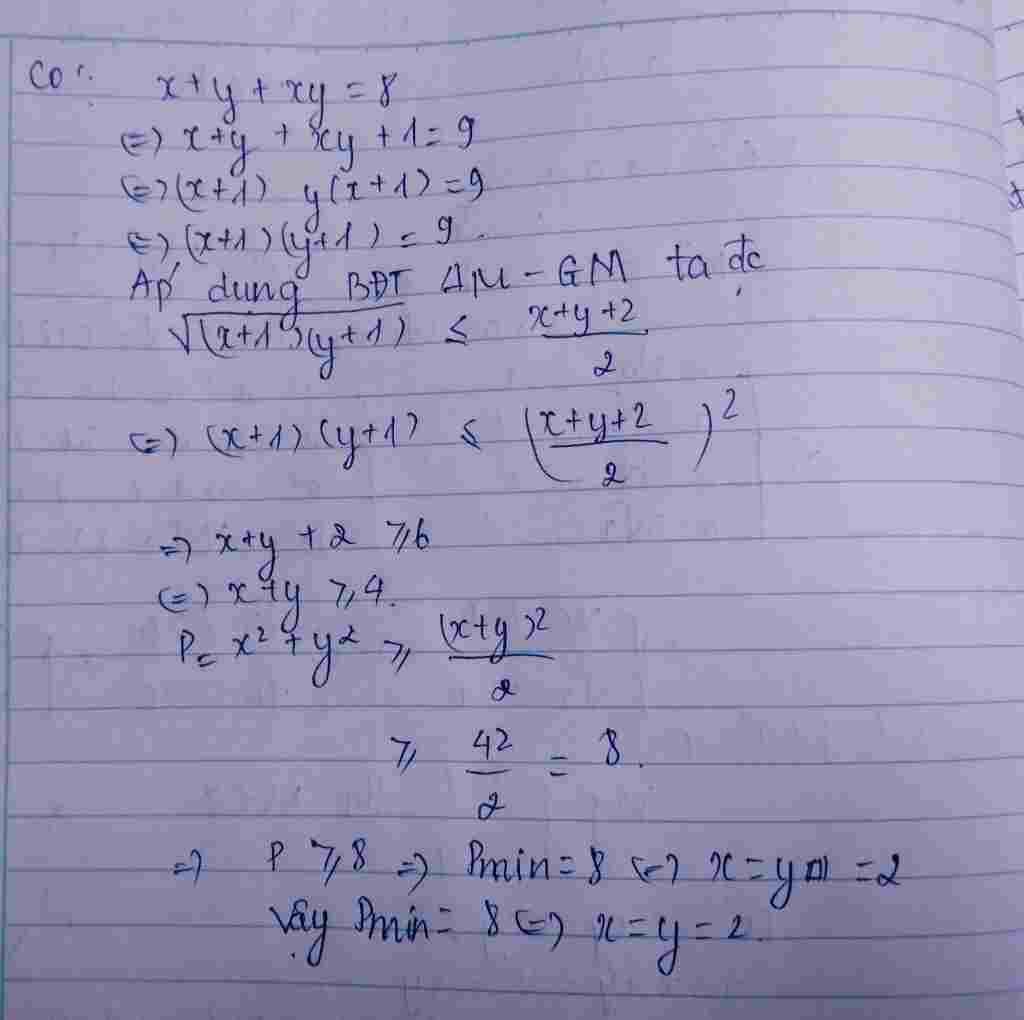 Có: x+y + xy = 8
(=) x+y + xy + 1 = 9
(=) (x+1) y(x+1) = 9
(=) (x+1)(y+1) = 9.
Áp dụng BĐT AM-GM ta đc
√(x+1)(y+1) ≤ (x+y+2)/2
(=) (x+1)(y+1) ≤ ((x+y+2)/2)²
=) x+y + 2 ≥ 6
(=) x+y ≥ 4.
P = x² + y² ≥ (x+y)²/2
≥ 4²/2 = 8.
=) P ≥ 8 =) Pmin = 8 (=) x = y = 2
Vậy Pmin = 8 (=) x = y = 2.